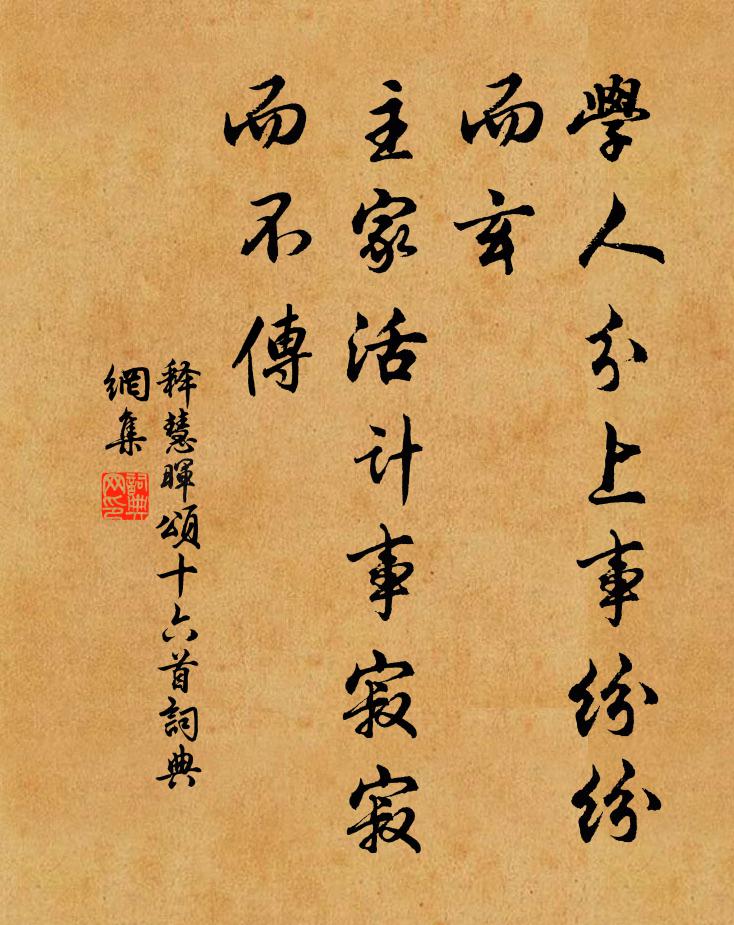 學人分上事紛紛
而玄
主家活計事寂寂
而不傳
释慧暉頌十六首詞典
網集
詞典
网印